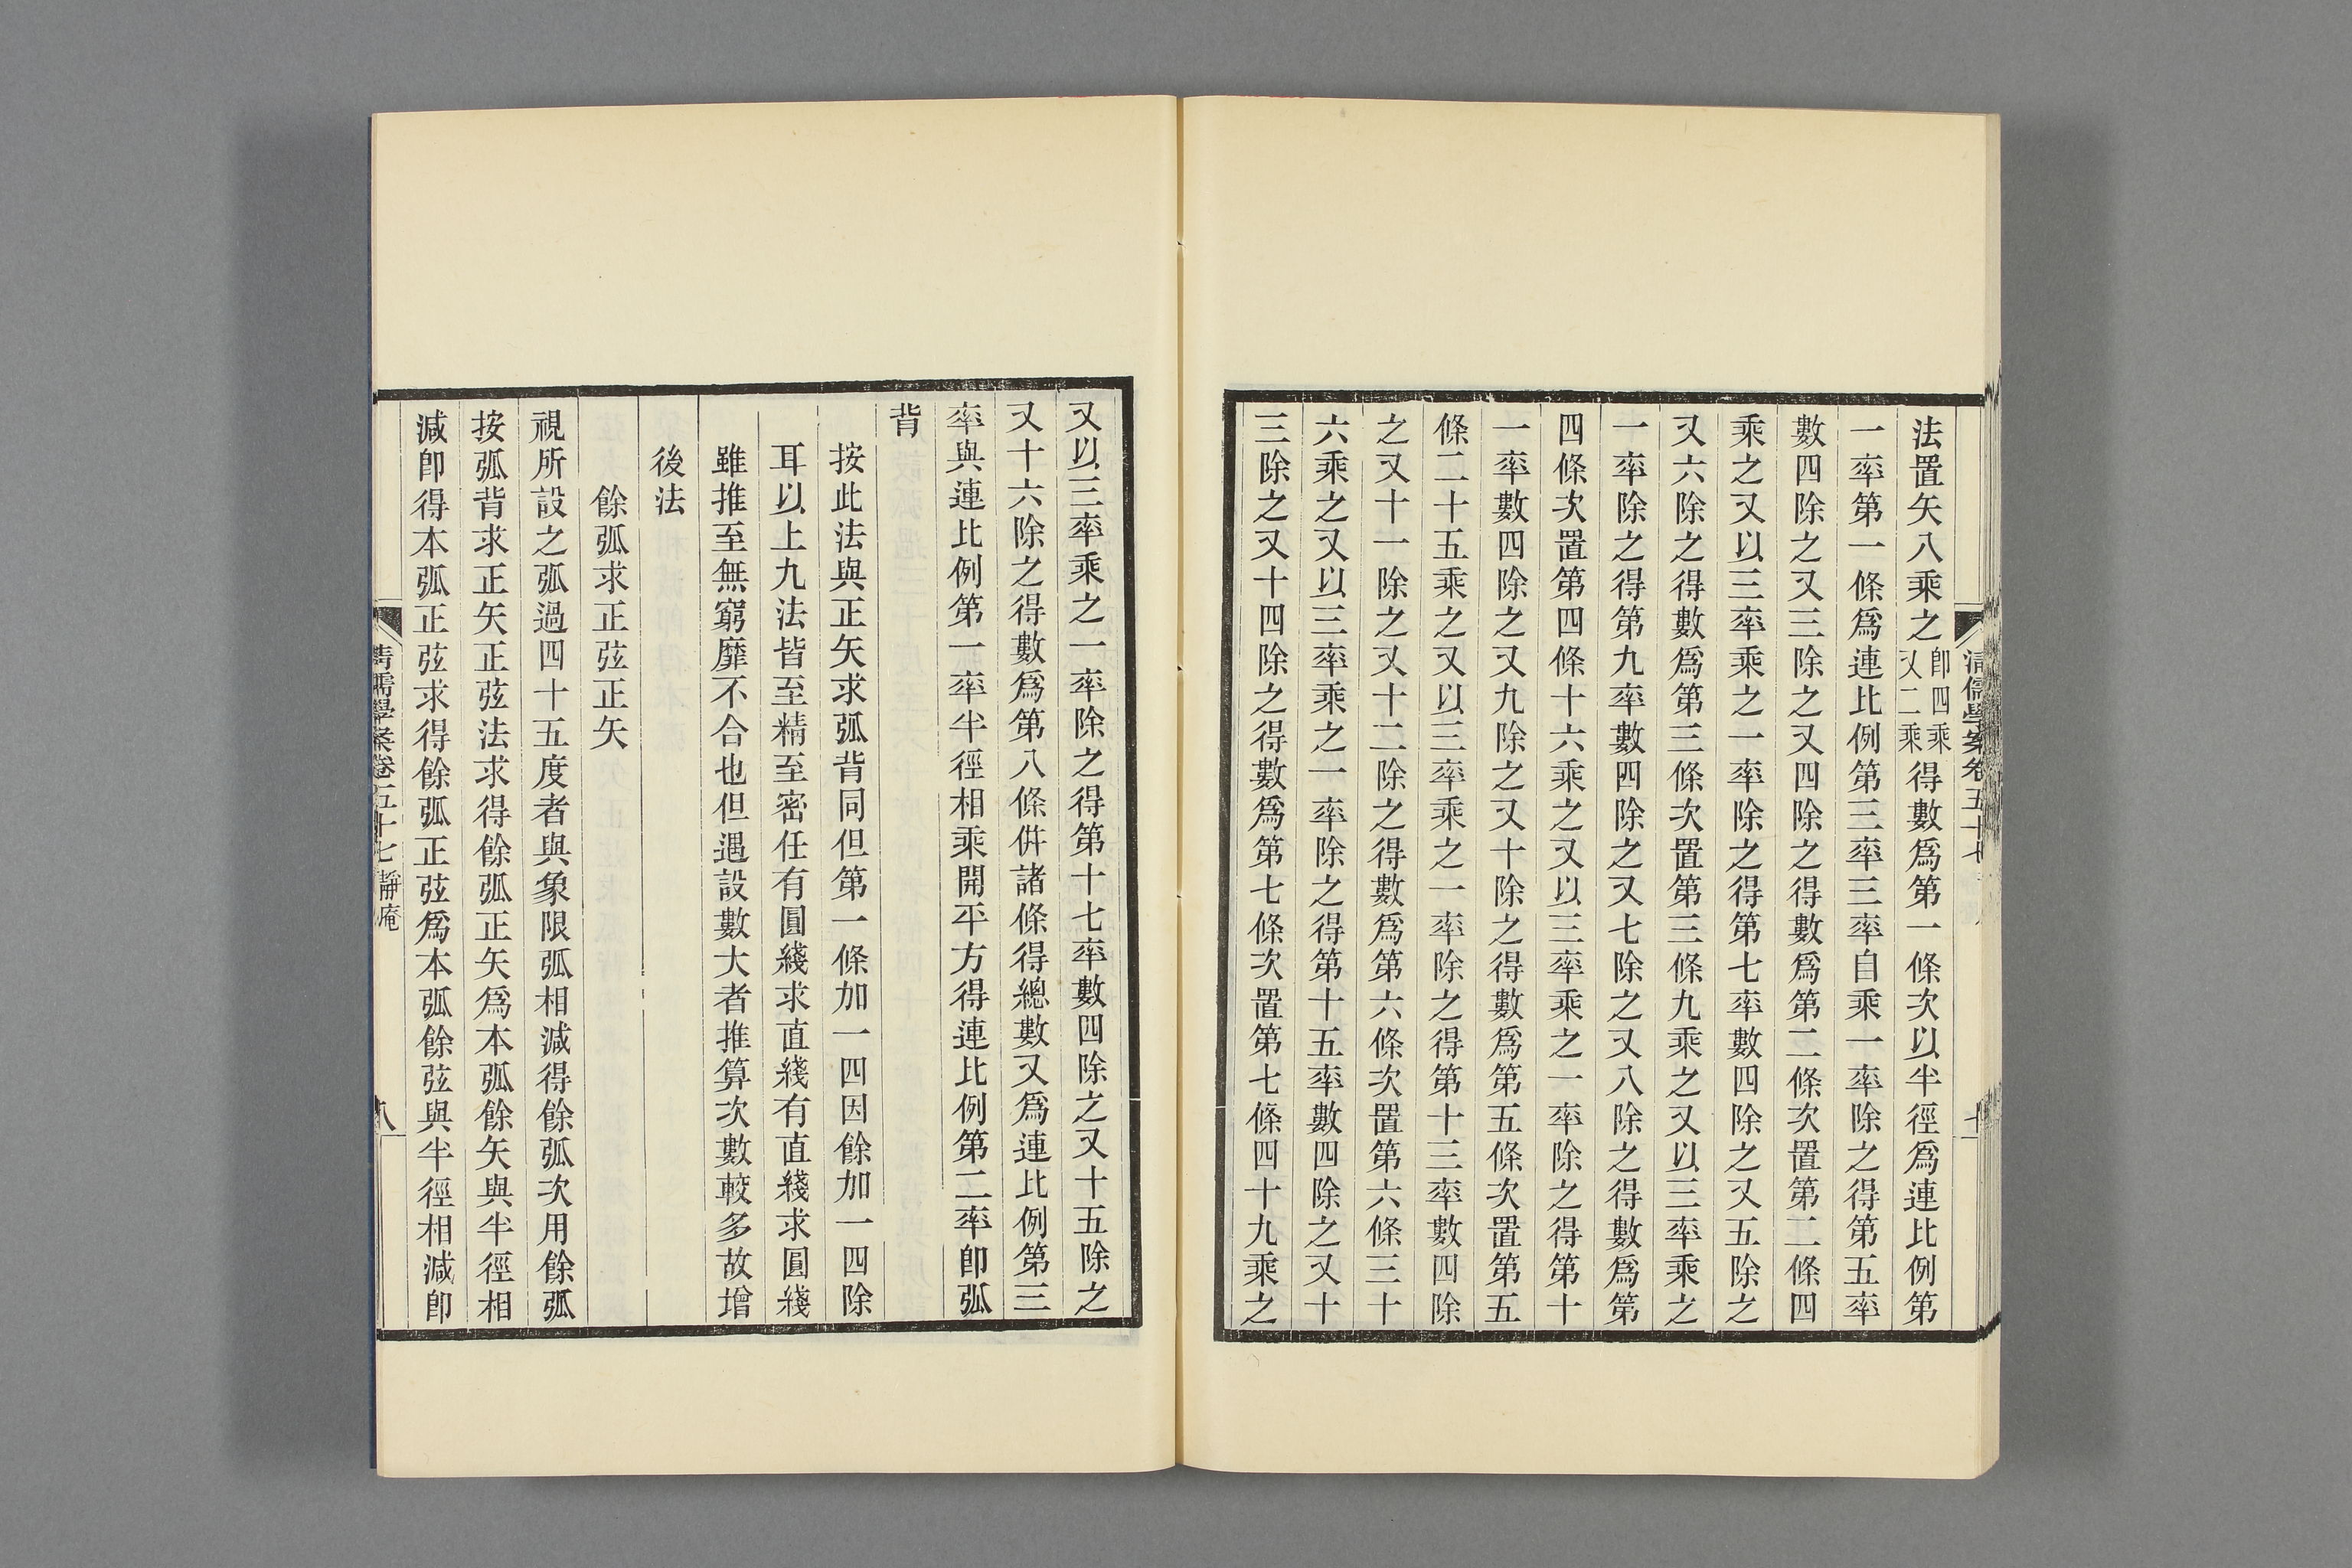 法置矢八乘之卽四乘又二乘得數爲第一條次以半徑爲連比例第
一率第一條爲連比例第三率三率自乘一率除之得第五率
數四除之又三除之又四除之得數爲第二條次置第二條四
乘之又以三率乘之一率除之得第七率數四除之又五除之
又六除之得數爲第三條次置第三條九乘之又以三率乘之
一率除之得第九率數四除之又七除之又八除之得數爲第
四條次置第四條十六乘之又以三率乘之一率除之得第十
一率數四除之又九除之又十除之得數爲第五條次置第五
條二十五乘之又以三率乘之一率除之得第十三率數四除
之又十一除之又十二除之得數爲第六條次置第六條三十
六乘之又以三率乘之一率除之得第十五率數四除之又十
三除之又十四除之得數爲第七條次置第七條四十九乘之
又以三率乘之一率除之得第十七率數四除之又十五除之
又十六除之得數爲第八條倂諸條得總數又爲連比例第三
率與連比例第一率半徑相乘開平方得連比例第二率卽弧
背
按此法與正矢求弧背同但第一條加一四因餘加一四除
耳以上九法皆至精至密任有圓綫求直綫有直綫求圓綫
雖推至無窮靡不合也但遇設數大者推算次數較多故增
後法
餘弧求正弦正矢
視所設之弧過四十五度者與象限弧相減得餘弧次用餘弧
按弧背求正矢正弦法求得餘弧正矢爲本弧餘矢與半徑相
減卽得本弧正弦求得餘弧正弦爲本弧餘弦與半徑相減卽
清儒學案卷五十七 靜庵
八